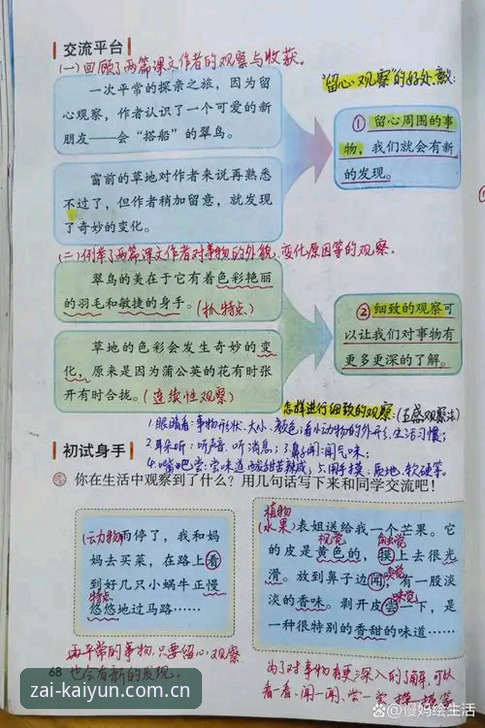 交流平台
(一)回顾了两篇课文作者的观察与收获。
一次平常的探亲之旅，因为留
心观察，作者认识了一个可爱的新
朋友——会“搭船”的翠鸟。
“留心观察”的好处
①留心周围的事
物，我们就会有新
的发现。
窗前的草地对作者来说再熟悉
不过了，但作者稍加留意，就发现
了奇妙的变化。
(二)例举了两篇课文作者对事物的外貌、变化原因等的观察。
翠鸟的美在于它有着色彩艳丽
的羽毛和敏捷的身手。(抓特点)
②细致的观察可
以让我们对事物有
更多更深的了解。
草地的色彩会发生奇妙的变
化，原来是因为蒲公英的花有时张
开有时合拢。(连续性观察)
怎样进行细致的观察:(五感观察法)
1.眼睛看:事物形状、大小、颜色;看小动物的外形、生活习惯;
2.耳朵听:听声音、听消息;3.鼻子闻:闻气味;
4.嘴巴尝:尝味道,酸甜苦辣咸;5.用手摸:质地、软硬等。
初试身手
你在生活中观察到了什么？用几句话写下来和同学交流吧！
(动物)雨停了，我和妈
妈去买菜，在路上看
到好几只小蜗牛正慢
特点
悠悠地过马路……
植物
(水果)表姐送给我一个芒果。它
视觉 触觉
的皮是黄色的，摸上去很光
滑。放到鼻子边闻，有一股淡
嗅觉
淡的香味。剥开皮尝一下，是
味觉
一种很特别的香甜的味道……
平常的事物,只要留心观察
也会有新的发现。
为了对事物有更深入的了解,可以
看一看、闻一闻、尝一尝、摸一摸等
68
zai-kaiyun.com.cn
@慢妈绘生活